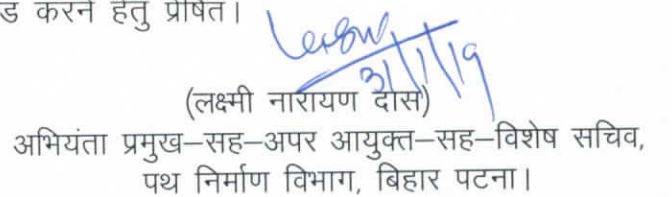 ड करने हेतु प्रेषित।
31/1/19
(लक्ष्मी नारायण दास)
अभियंता प्रमुख–सह–अपर आयुक्त–सह–विशेष सचिव,
पथ निर्माण विभाग, बिहार पटना।